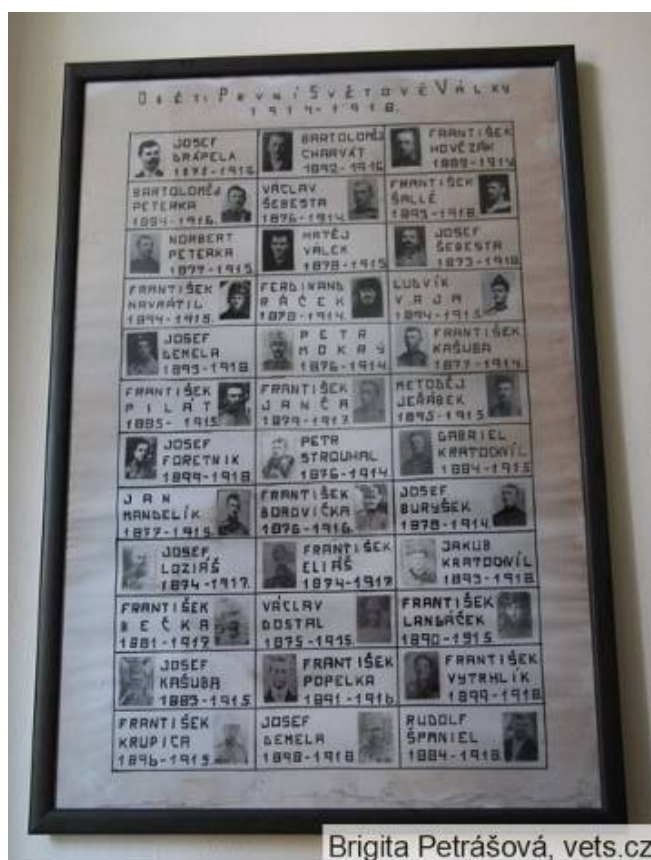 OBĚTI PRVNÍ SVĚTOVÉ VÁLKY
1914-1918.
JOSEF
DRÁPELA
BARTOLOMĚJ
CHARVÁT
1892-1916
FRANTIŠEK
HOVĚZÁK
BARTOLOMĚJ
PETERKA
1894-1916.
VÁCLAV
ŠEBESTA
1876-1914.
FRANTIŠEK
ŠALLÉ
1893-1918.
NORBERT
PETERKA
1877-1915
MATĚJ
VÁLEK
1878-1915
JOSEF
ŠEBESTA
1873-1918
FRANTIŠEK
NAVRÁTIL
1894-1915.
FERDINAND
RÁČEK
1878-1914.
LUDVÍK
VAJA
1894-1915.
JOSEF
DEMELA
1893-1918
PETR
MOKRÝ
1876-1914
FRANTIŠEK
KAŠUBA
1877-1914
FRANTIŠEK
PILÁT
1885-1915.
FRANTIŠEK
JANČA
1879-1917.
METODĚJ
JEŘÁBEK
1893-1915
JOSEF
FORETNIK
1899-1918
PETR
STROUHAL
1876-1914
GABRIEL
KRATOCHVÍL
1884-1915
JAN
MANDELÍK
1877-1915.
FRANTIŠEK
BOROVIČKA
1876-1916.
JOSEF
BURYŠEK
1878-1914.
JOSEF
LOZIÁŠ
1874-1917.
FRANTIŠEK
ELIÁŠ
1874-1917
JAKUB
KRATOCHVÍL
1893-1918
FRANTIŠEK
BEČKA
1881-1917.
VÁCLAV
DOSTAL
1875-1915.
FRANTIŠEK
LANGÁČEK
1890-1915.
JOSEF
KAŠUBA
1883-1915
FRANTIŠEK
POPELKA
1891-1916
FRANTIŠEK
VYTRHLÍK
1899-1918
FRANTIŠEK
KRUPICA
1896-1915.
JOSEF
DEMELA
1898-1918
RUDOLF
ŠPANIEL
1884-1918.
Brigita Petrášová, vets.cz